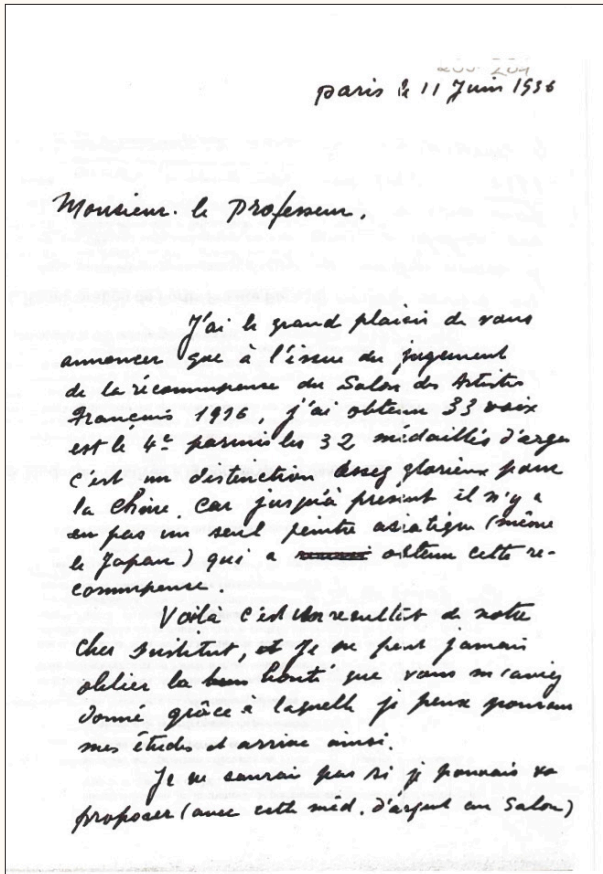 Paris le 11 Juin 1936
Monsieur le Professeur,
J'ai le grand plaisir de vous
annoncer que à l'issue du jugement
de la récommpense du Salon des Artistes
Français 1936, j'ai obtenu 33 voix
est le 4e parmis les 32 médaillés d'argen
c'est un distinction assez glorieux pour
la Chine. Car jusqu'à present il n'y a
eu pas un seul peintre asiatique (même
le Japan) qui a obtenu cette re-
commpense.
Voilà c'est un resultat de notre
cher Institut, et je ne peux jamais
oblier la bonté que vous m'aviez
donné, grâce à laquelle je peux poursuiv
mes études et arrive ainsi.
Je ne saurai pas si je pouvais vo
proposer (avec cette méd. d'argent au Salon)